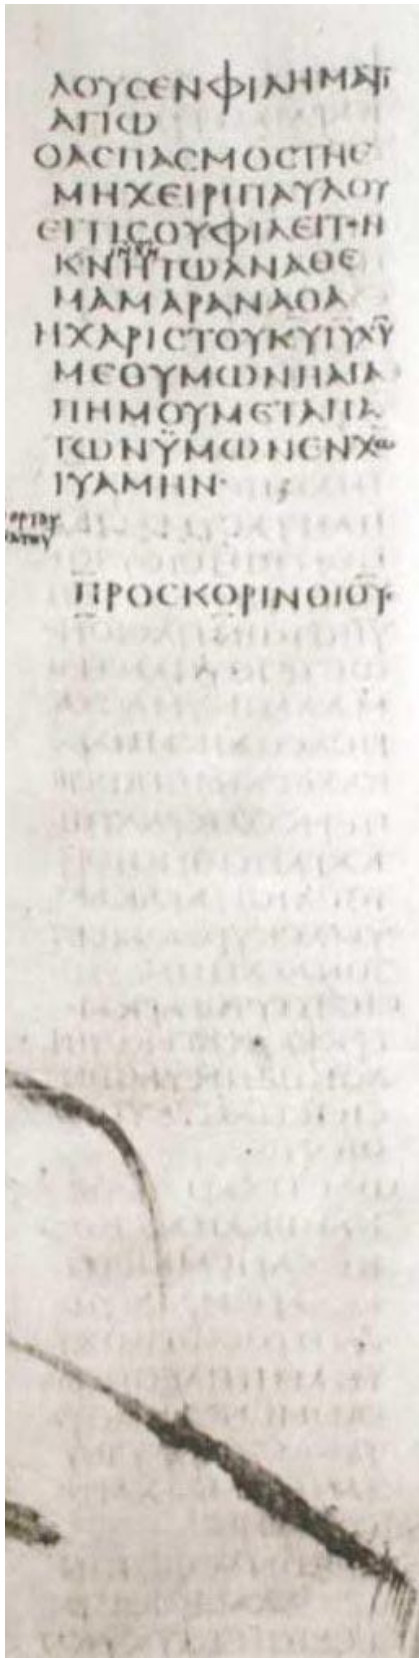 ΛΟΥϹΕΝΦΙΛΗΜΑΤΙ
ΑΓΙΩ
ΟΑϹΠΑϹΜΟϹΤΗΕ
ΜΗΧΕΙΡΙΠΑΥΛΟΥ
ΕΙΤΙϹΟΥΦΙΛΕΙΤΟΝ
ΚΝΗΤΩΑΝΑΘΕ
ΜΑΜΑΡΑΝΑΘΑ
ΗΧΑΡΙϹΤΟΥΚΥΙΥΧΥ
ΜΕΘΥΜΩΝΗΑΓΑ
ΠΗΜΟΥΜΕΤΑΠΑ
ΤΩΝΫΜΩΝΕΝΧΩ
ΙΥΑΜΗΝ·
ΠΡΟϹΚΟΡΙΝΘΙΟΥϹ